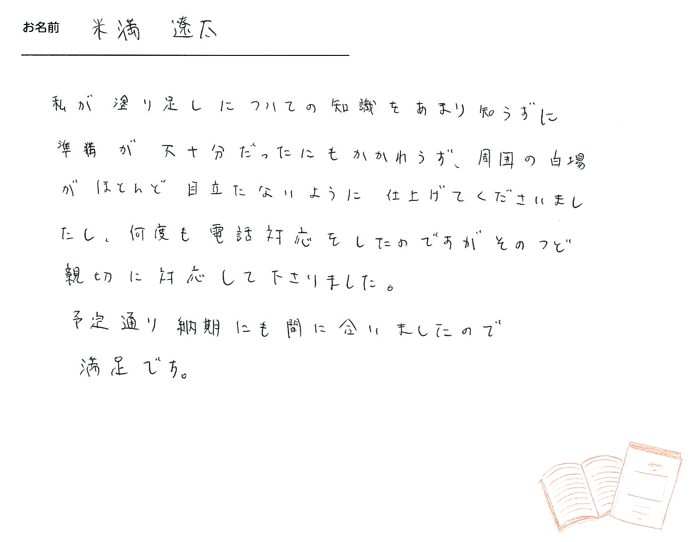 お名前 米満 遼太
私が塗り足しについての知識をあまり知らずに
準備が不十分だったにもかかわらず、周囲の白場
がほとんど目立たないように仕上げてくださいまし
たし、何度も電話対応をしたのですがそのつど
親切に対応して下さりました。
予定通り納期にも間に合いましたので
満足です。